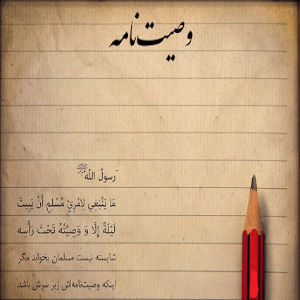 وصیت‌نامه
رسولُ اللّه ﷺ
مَا یَنْبَغِي لِامْرِئٍ مُسْلِمٍ أَنْ یَبِیتَ
لَیْلَةً إِلَّا وَ وَصِیَّتُهُ تَحْتَ رَأْسِه
شایسته نیست مسلمان بخوابد مگر
اینکه وصیت‌نامه‌اش زیر سرش باشد